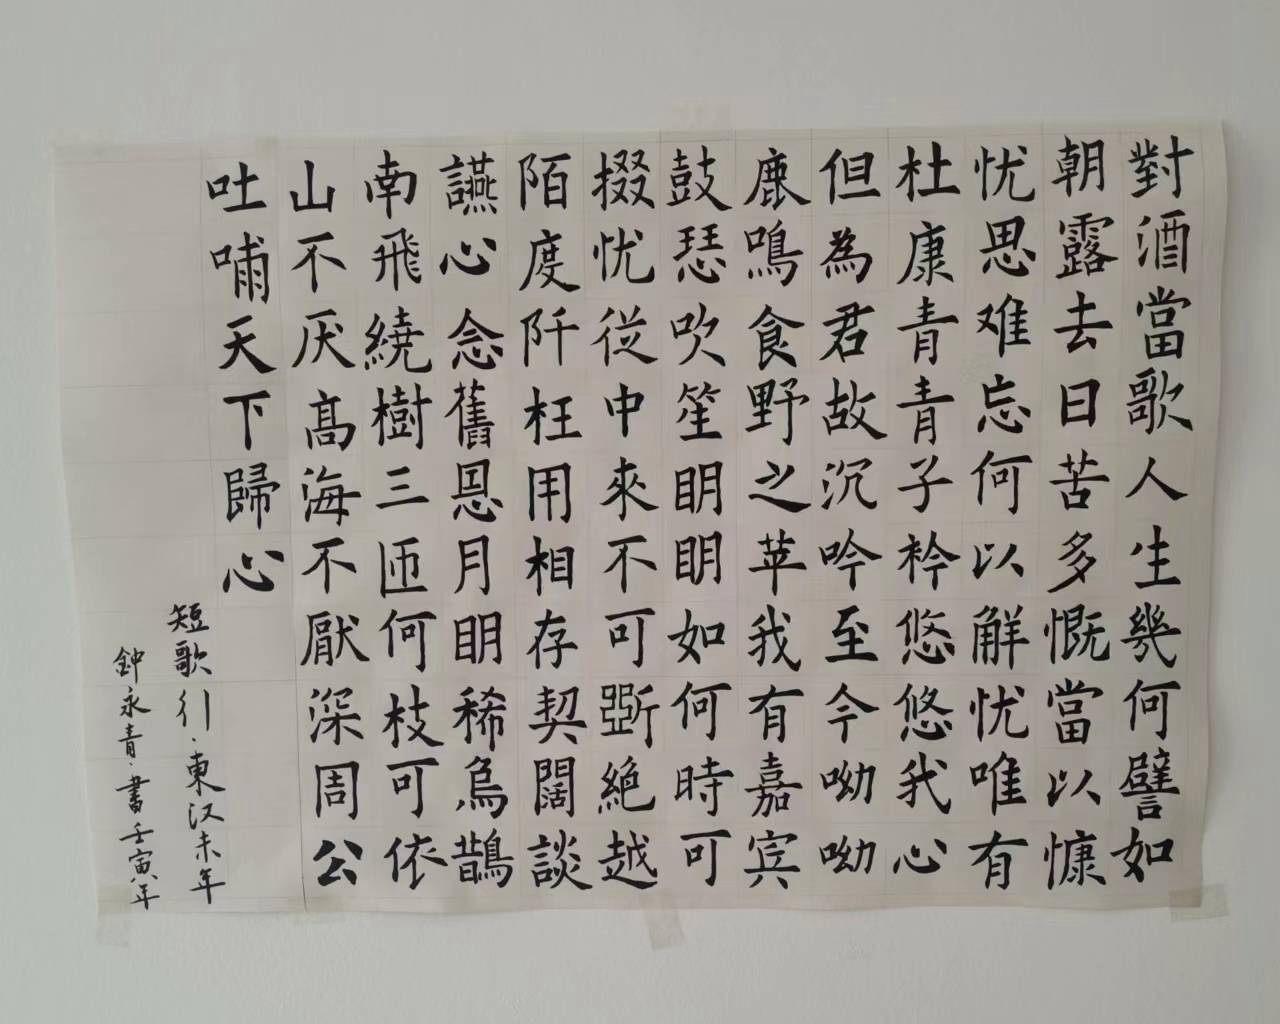 對酒當歌人生幾何譬如
朝露去日苦多慨當以慷
忧思难忘何以解忧唯有
杜康青青子衿悠悠我心
但為君故沉吟至今呦呦
鹿鳴食野之苹我有嘉宾
鼓瑟吹笙明明如何時可
掇忧從中來不可斷絕越
陌度阡枉用相存契闊談
讌心念舊恩月明稀烏鵲
南飛繞樹三匝何枝可依
山不厌高海不厭深周公
吐哺天下歸心
短歌行·東汉末年
鈡永青·書壬寅年